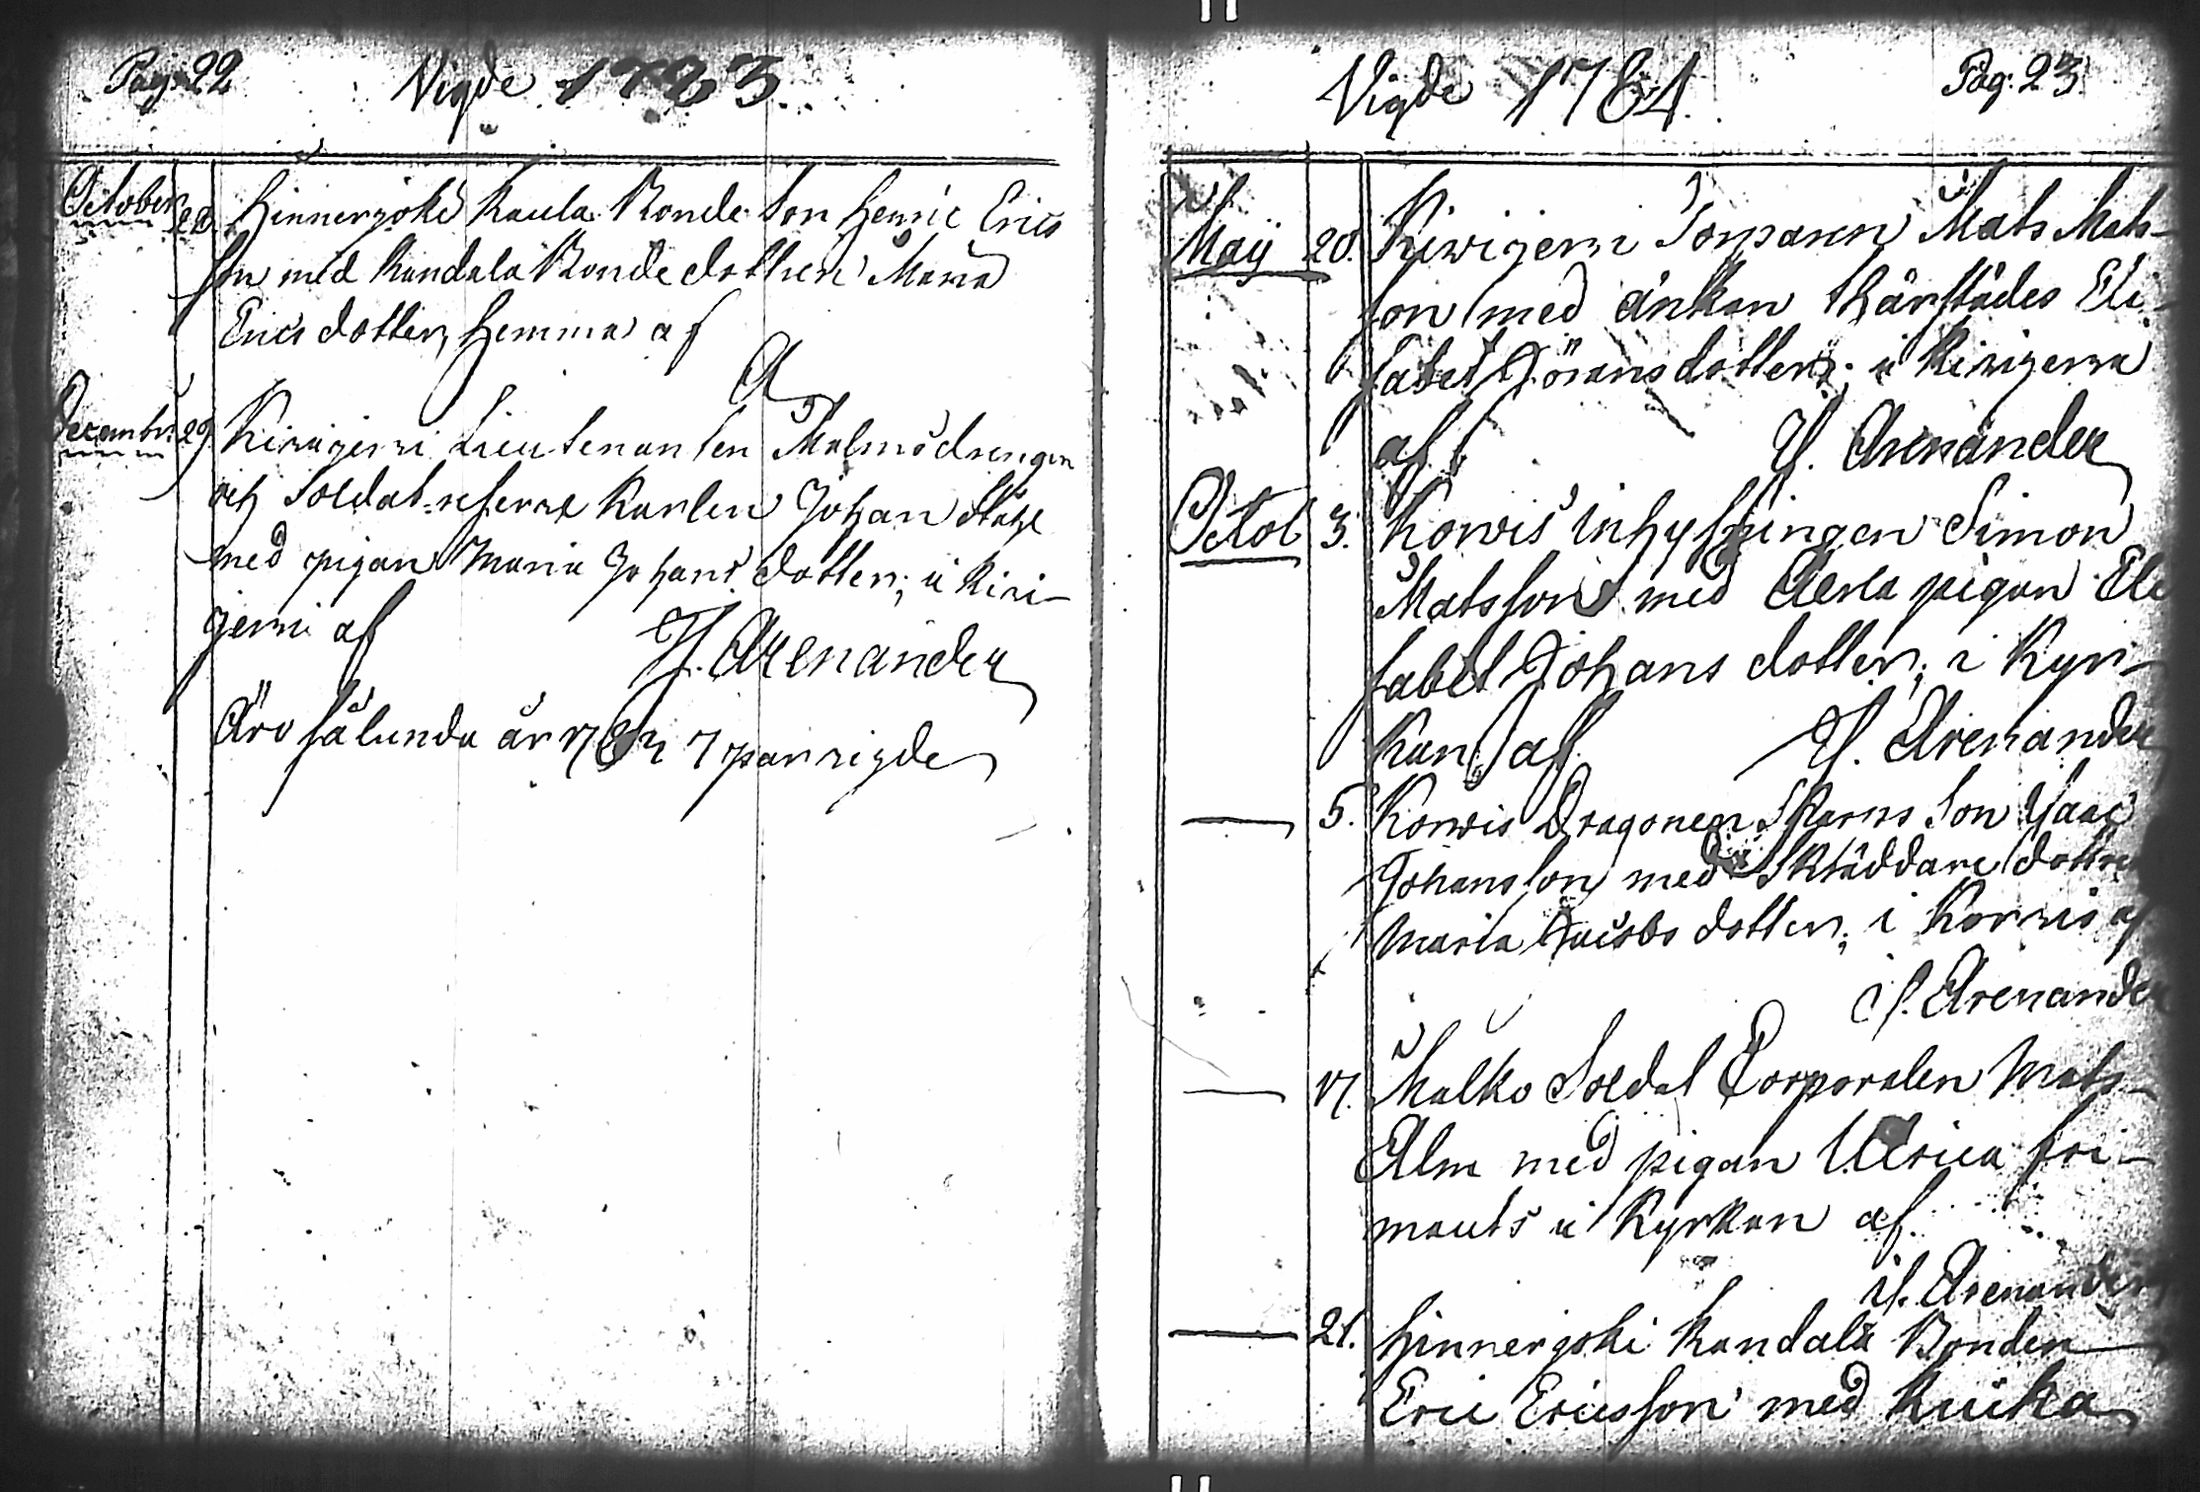 Pag: 22
Vigde 1783
October 28. Hinnerjoki Kaula Bonde Son Henric Erics
son med Kandala Bonde dotteren Maria
Erics dotter, hemma af
A
Decembr: 29. Kirigerri Lieutenanten Malms drengen
och Soldat-reserve Karlen Johan Stahl
med pigan Maria Johans dotter; i Kiri-
jerri af H. Arenander
Äro således år 1783 7 par vigde
Vigde 1784
Pag: 23
Maij 20. Kirigerri Torparen Mats Mats-
son med änkan härstädes Eli-
sabet Görans dotter; i Kirigerra
af H. Arenander
Octob 3. Korvis inhysingen Simon
Matsson med pigan Eli
sabet Johans dotter; i Kyr-
kan af H. Arenander
5. Korvis Dragonen Skarns Son Isaac
Johansson med Skräddare dottren
Maria Jacobs dotter; i Korvis af
H. Arenander
17. Malko Soldat Corporalen Mats
Alm med pigan Ulrica Fri-
mauts i Kyrkan af
H. Arenander
21. Hinnerjoki Kandala Bonden
Eric Ericsson med Kuika